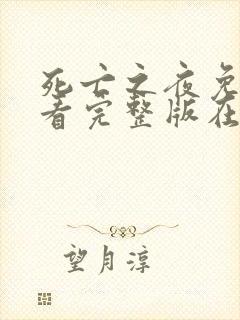 死亡之夜免
看完整版在
望月淳